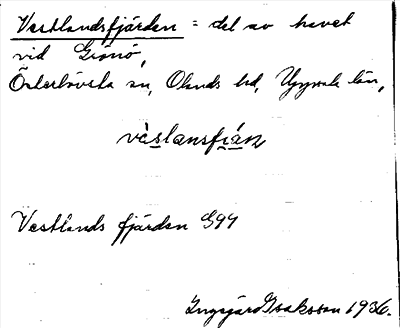 Vestlandsfjärden = del av havet
vid Gränö,
Österlövsta sn, Olands hd, Uppsala län,
vàslansfjạ́n
Vestlands fjärden G99
Ingegärd Isaksson 1936.